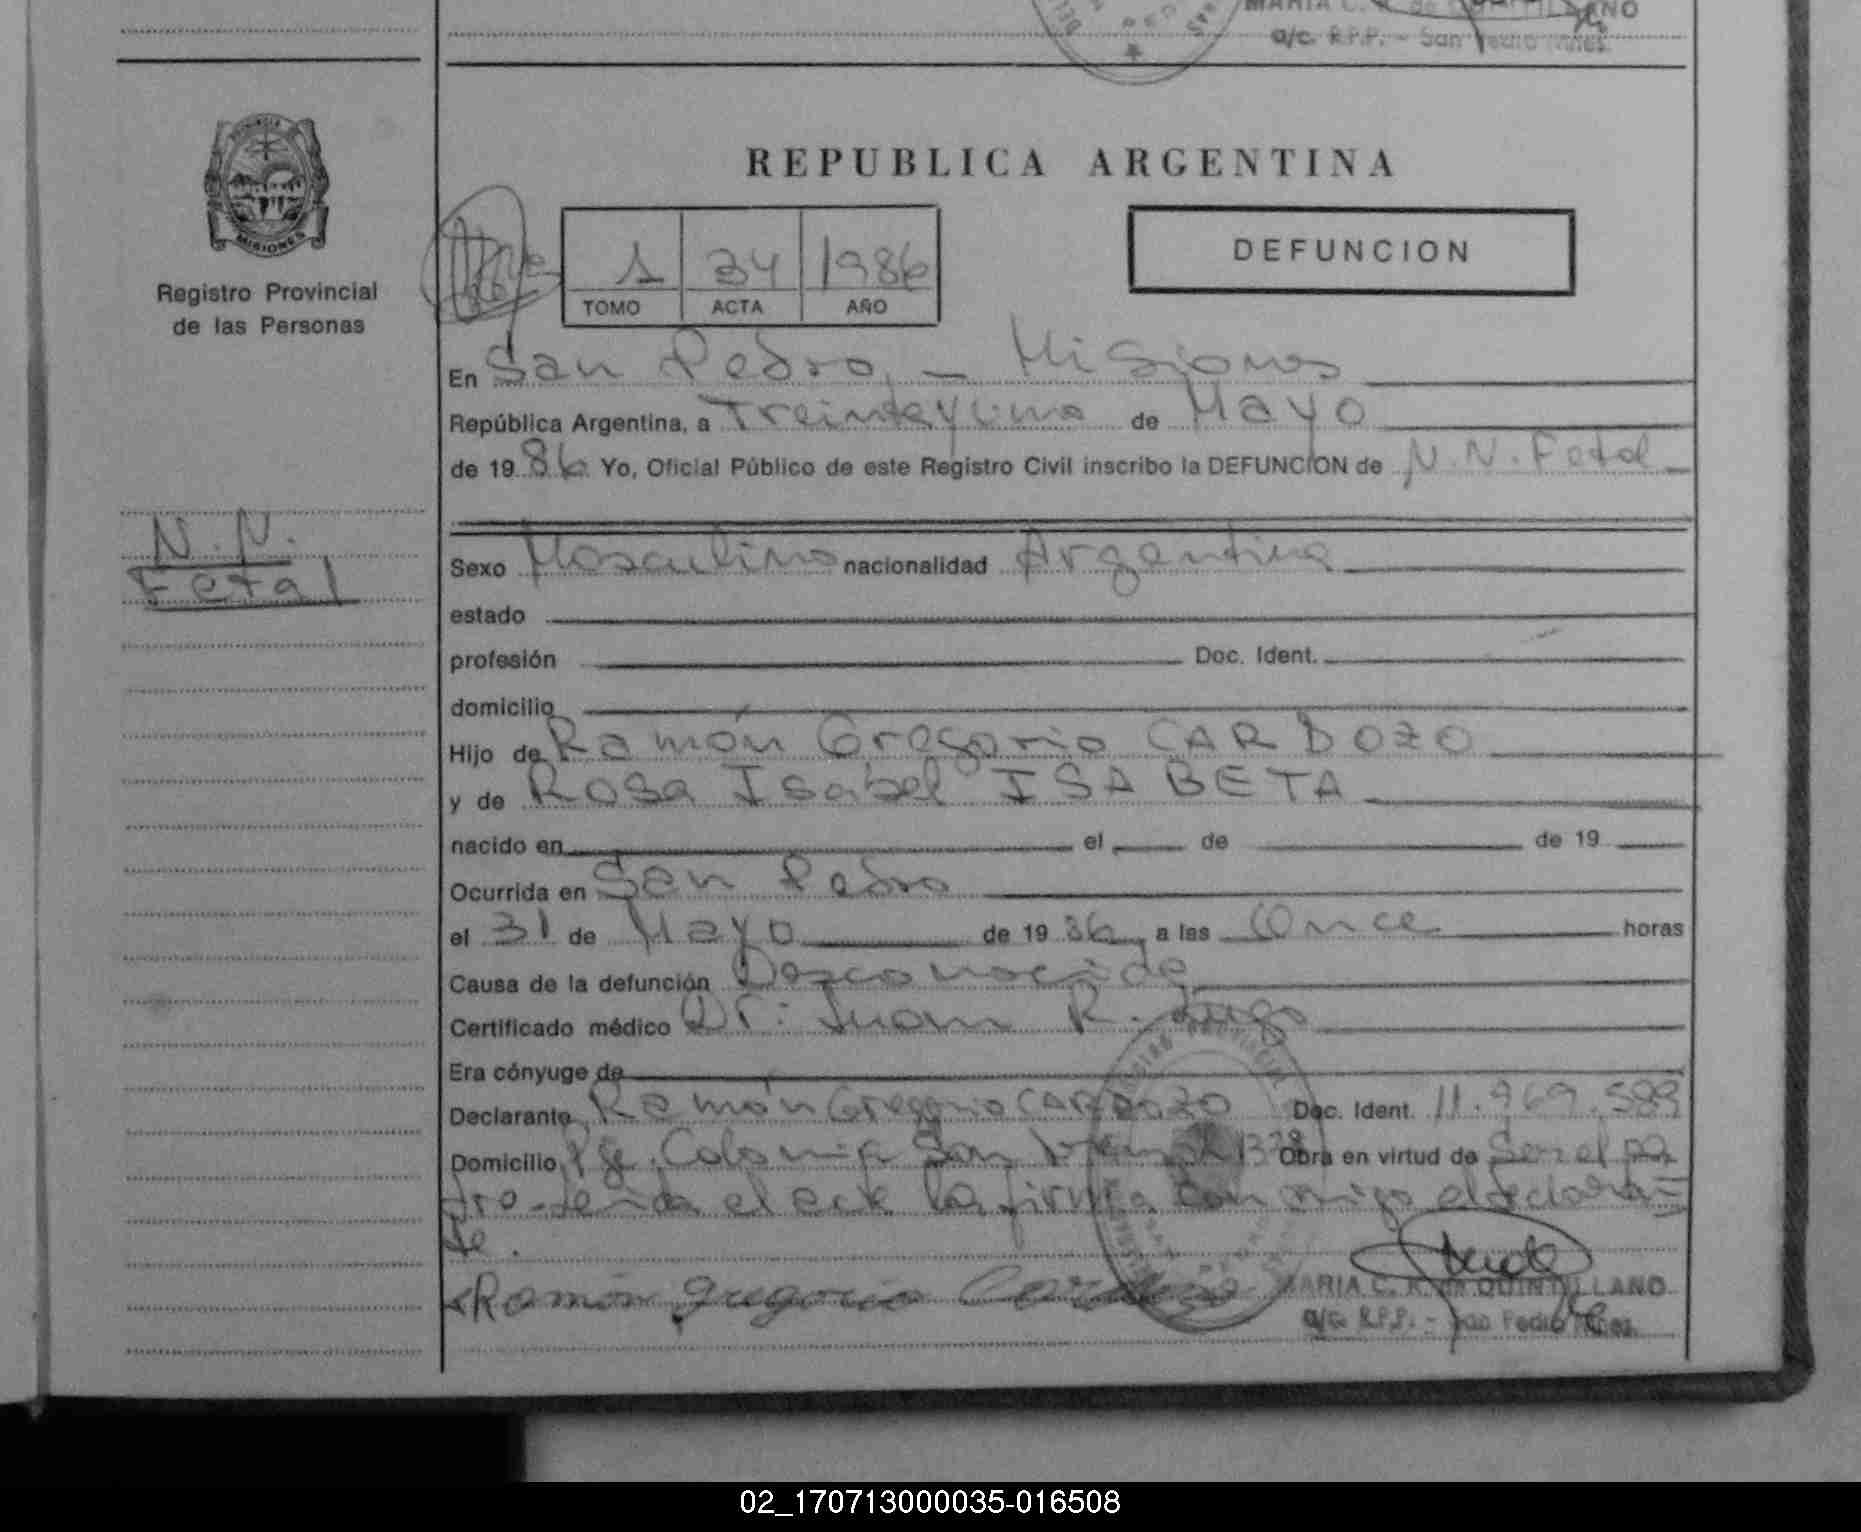 MARIA C. R. de QUINTILLANO
a/c. R.P.P. - San Pedro Mnes.
PROVINCIA
MISIONES
Registro Provincial
de las Personas
REPUBLICA ARGENTINA
1 34 1986
TOMO ACTA AÑO
DEFUNCION
En San Pedro, - Misiones
República Argentina, a Treinta y uno de Mayo
de 19 86 Yo, Oficial Público de este Registro Civil inscribo la DEFUNCION de N.N. Fetal
N.N.
Fetal
Sexo Masculino nacionalidad Argentina
estado
profesión Doc. Ident.
domicilio
Hijo de Ramón Gregorio CARDOZO
y de Rosa Isabel ISABETA
nacido en el de de 19
Ocurrida en San Pedro
el 31 de Mayo de 19 86, a las Once horas
Causa de la defunción Desconocida
Certificado médico Dr: Juan R. Lugo
Era cónyuge de
Declarante Ramón Gregorio CARDOZO Doc. Ident. 11.969.589
Domicilio Pje. Colonia San Obra en virtud de Ser el pa
dre - leida el acta la firma con migo el declaran=
te.
Ramón gregorio Cardozo
MARIA C. R. de QUINTILLANO
a/c. R.P.P. - San Pedro Mnes.
02_170713000035-016508